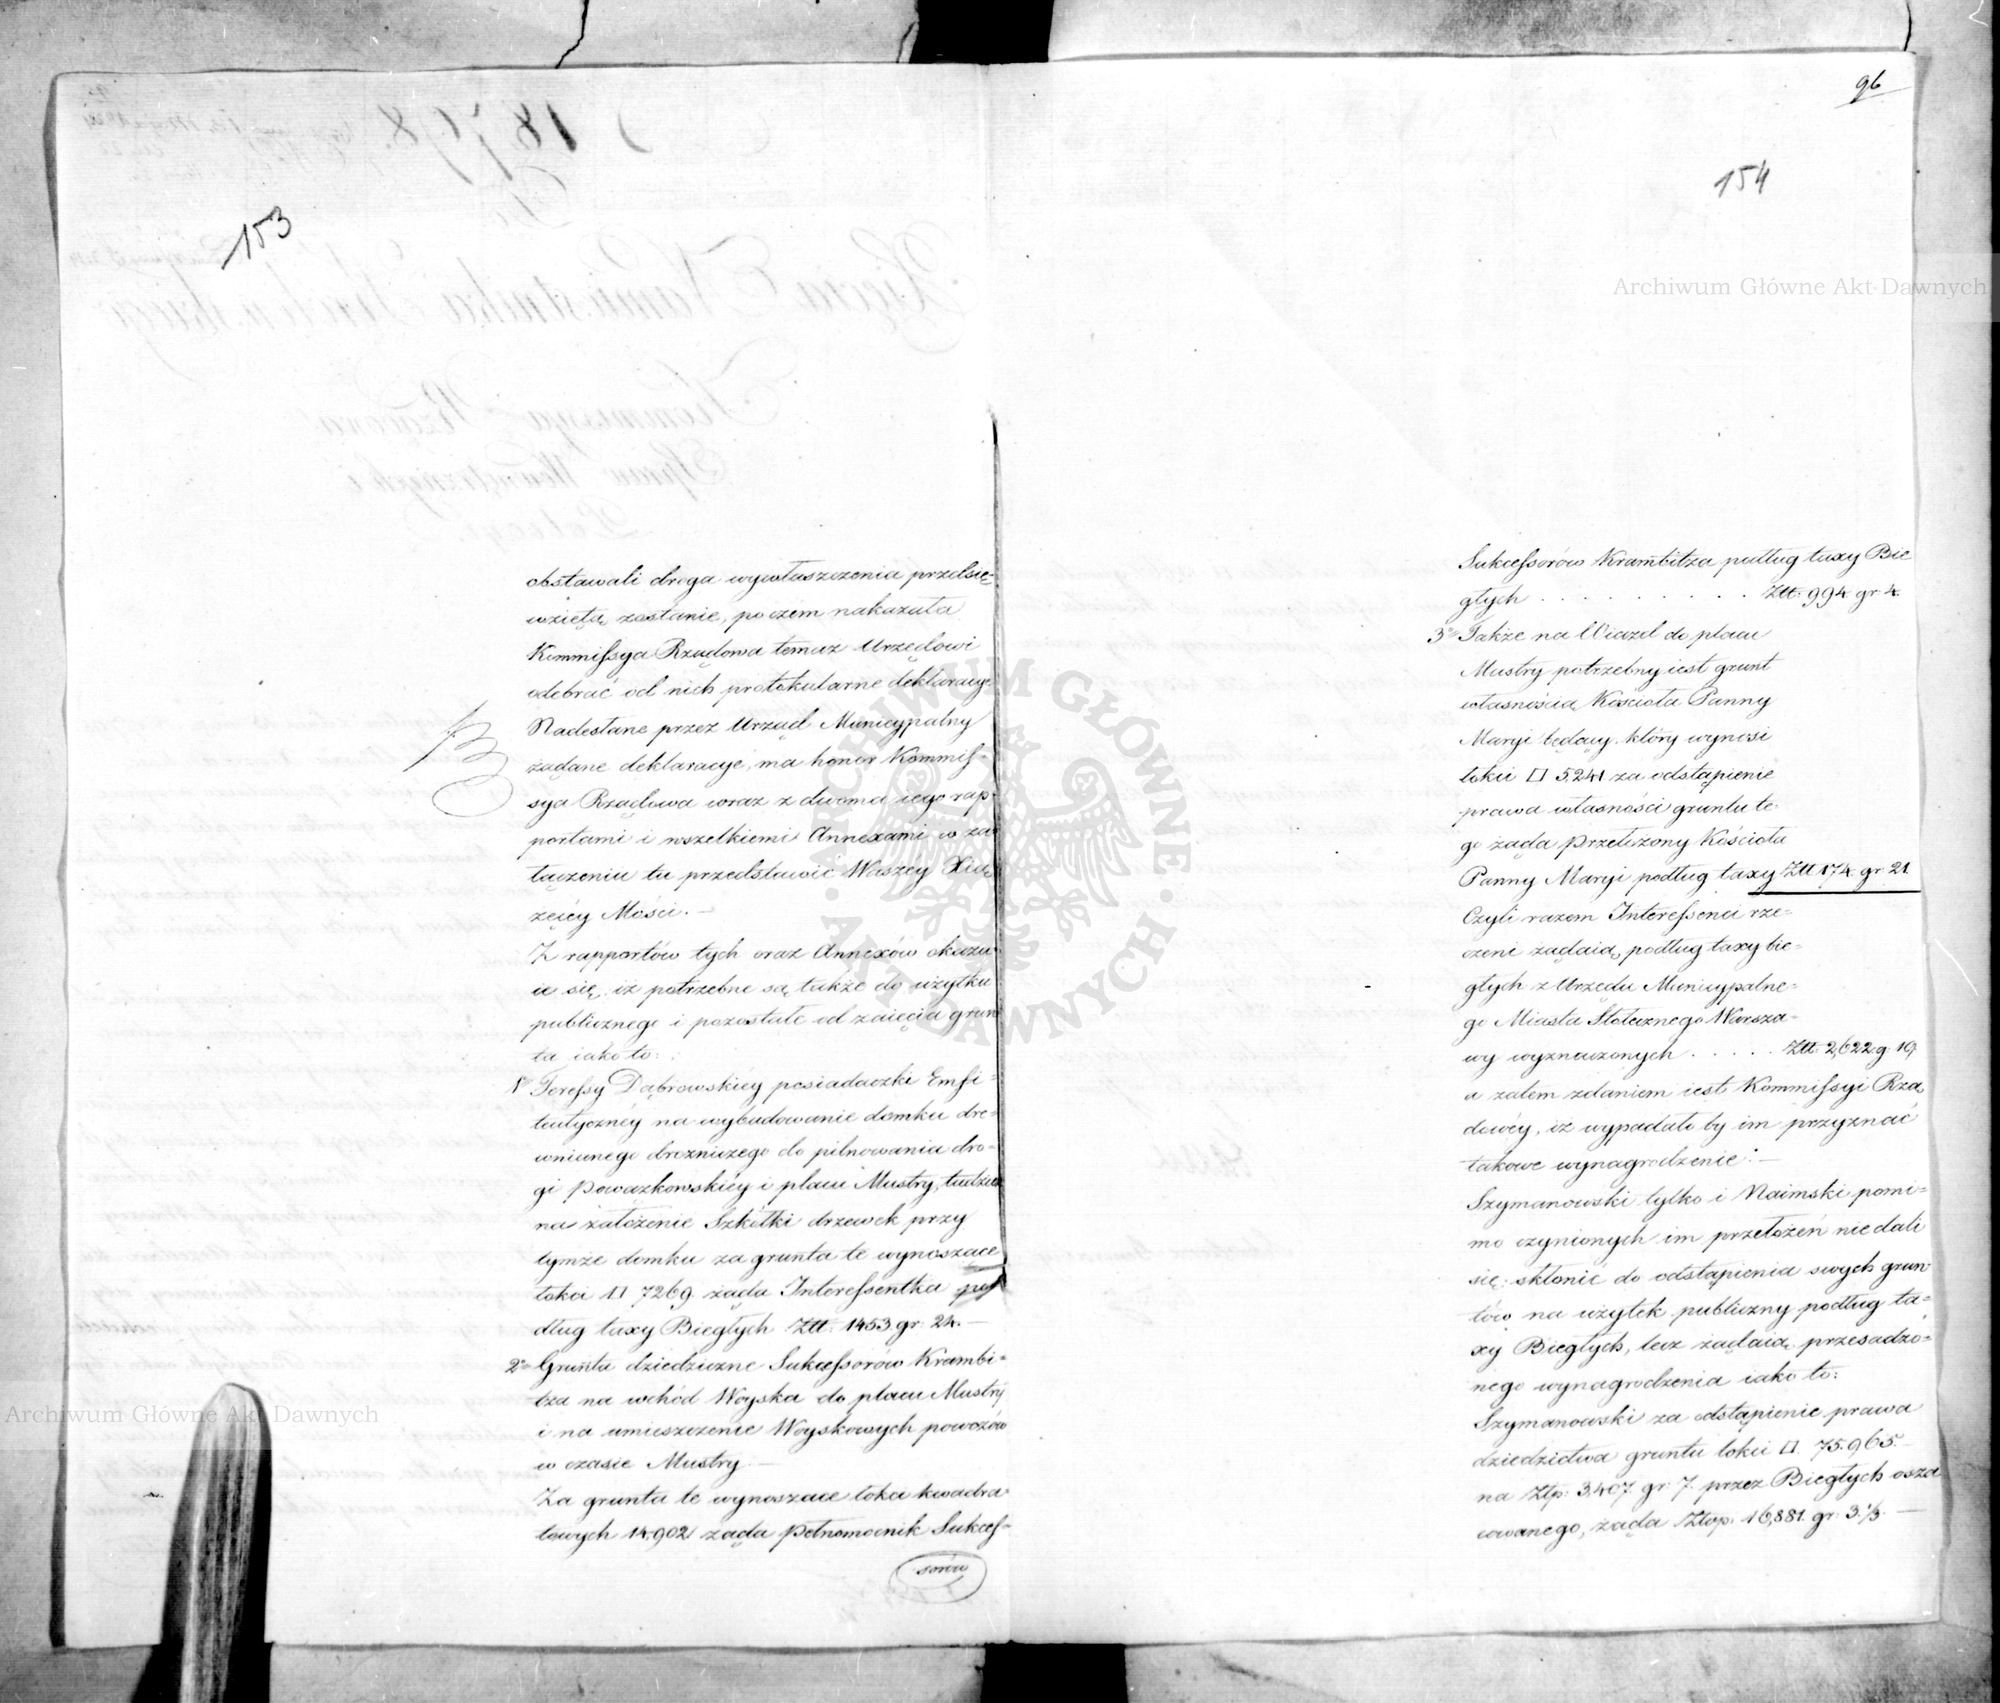 153
obstawali droga wywłaszczenia przedsię=
wziętą zostanie, poczem nakazała
Kommissya Rządowa temuż Urzędowi
odebrać od nich protokularne deklaracye
Nadesłane przez Urząd Municypalny
żądane deklaracye, ma honor Kommis=
sya Rządowa wraz z dwoma iego rap=
portami i wszelkiemi Annexami w za
łączeniu tu przedstawić Waszey Xią
żęcey Mości. —
Z rapportów tych oraz Annexów okazu
ie się, iż potrzebne są także do użytku
publicznego i pozostałe od zaięcia grun
ta iako to:
1º Teressy Dąbrowskiey posiadaczki Emfi=
teutyczney na wybudowanie domku dre=
wnianego drożniczego do pilnowania dro=
gi Powązkowskiey i placu Mustry, tudzież
na założenie Szkółki drzewek przy
tymże domku za grunta te wynoszące
łokci □ 7269 żąda Interessentka po
dług taxy Biegłych Złt: 1453 gr: 24. —
2º Grunta dziedziczne Sukcessorów Krambi=
tza na wchód Woyska do placu Mustry
i na umieszczenie Woyskowych powozów
w czasie Mustry —
Za grunta te wynoszące łokci kwadra=
towych 14,902 żąda Pełnomocnik Sukces=
sorów
96
154
Sukcessorów Krambitza podług taxy Bie
głych . . . . . . . . . . Złt: 994 gr: 4.
3º Także na Wiazd do placu
Mustry potrzebny iest grunt
własnością Kościoła Panny
Maryi będący, który wynosi
łokci □ 5,241 za odstąpienie
prawa własności gruntu te=
go żąda Przełożony Kościoła
Panny Maryi podług taxy Złt 174 gr 21.
Czyli razem Interessenci rze=
czeni żądaią, podług taxy bie=
głych z Urzędu Municypalne=
go Miasta Stołecznego Warsza=
wy wyznaczonych . . . . . Złt: 2,622 g. 19
a zatem zdaniem iest Kommissyi Rzą
dowéy, iż wypadało by im przyznać
takowe wynagrodzenie: —
Szymanowski tylko i Naimski pomi=
mo czynionych im przełożeń nie dali
się skłonić do odstąpienia swych grun=
tów na użytek publiczny podług ta=
xy Biegłych, lecz żądaią przesadzo=
nego wynagrodzenia iako to:
Szymanowski za odstąpienie prawa
dziedzictwa gruntu łokci □ 75,965.
na Złp: 3,407 gr: 7 przez Biegłych osza
cowanego, żąda Złop. 16,881. gr: 3⅓. —
Archiwum Główne Akt Dawnych
Archiwum Główne Akt Dawnych
ARCHIWUM GŁÓWNE · AKT DAWNYCH ·